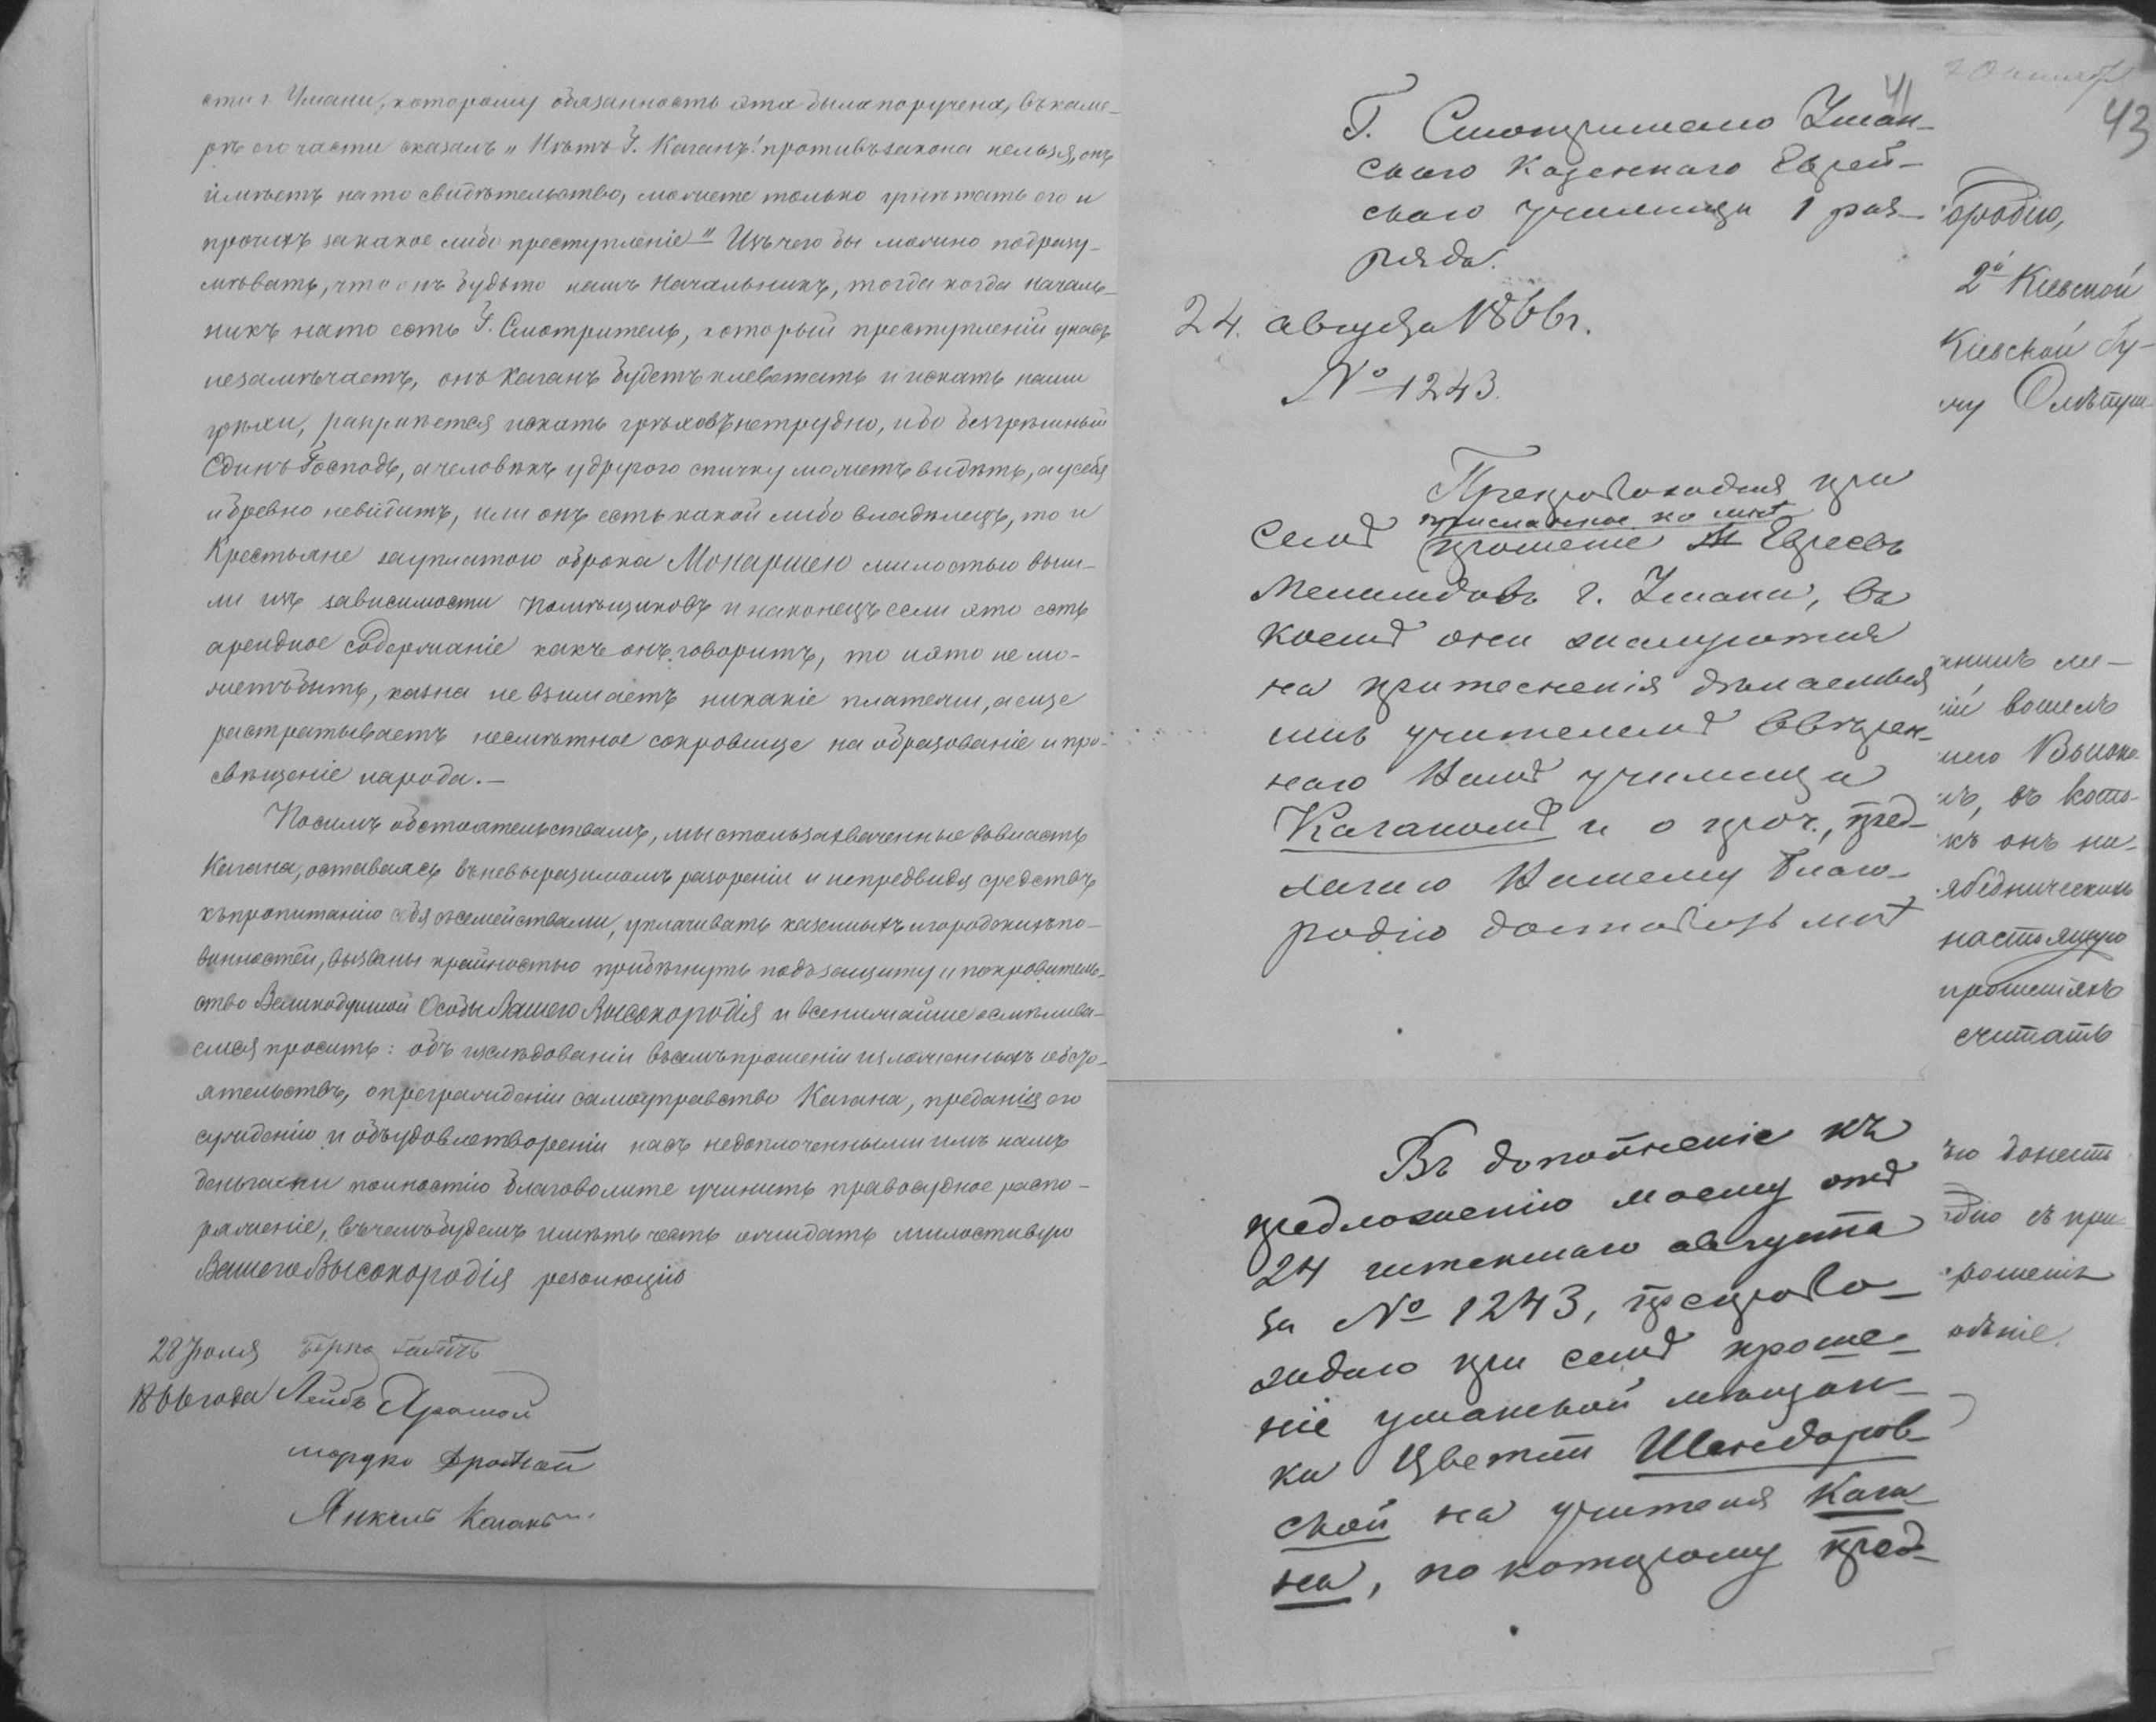 сти г. Умани, которому обязанность эта была поручена, въ каме-
рѣ его части сказалъ „Нѣтъ Г. Каганъ! противъ закона нельзя, онъ
имѣетъ на то свидѣтельство, можете только грѣ его и
прочихъ за какое либо преступленіе" Изъ чего бы можно подразу-
мѣвать, что онъ будьто нашъ Начальникъ, тогда когда началь-
никъ на то есть Г. Смотритель, который преступленій у насъ
незамѣчаетъ, онъ Каганъ будетъ клеветать и искать наши
грѣхи, разумѣется искать грѣховъ нетрудно, ибо безгрѣшный
Единъ Господь, а человѣкъ у другого спичку можетъ видѣть, а у себя
и бревно невидитъ, или онъ есть какой либо владѣлецъ, то и
Крестьяне за уплатою оброка Монаршею милостью выш-
ли изъ зависимости Помѣщиковъ и наконецъ если это есть
арендное содержаніе какъ онъ говоритъ, то и это не мо-
жетъ быть, казна не взимаетъ никакіе платежи, а еще
растратываетъ несмѣтное сокровище на образованіе и про-
свѣщеніе народа.—
По симъ обстоятельствамъ, мы столь захваченные во власть
Кагана, оставаясь въ невыразимомъ разореніи и непредвидя средствъ
къ пропитанію себя съ семействами, уплачивать казенныхъ и городскихъ по-
винностей, вызваны крайностью прибѣгнуть подъ защиту и покровитель-
ство Великодушной Особы Вашего Высокородія и всенижайше осмѣлива-
емся просить: объ изслѣдованіи въ семъ прошеніи изложенныхъ обсто-
ятельствъ, о прегражденіи самоуправство Кагана, преданія его
сужденію и объ удовлетвореніи насъ недоплоченными имъ намъ
деньгами полностію благоволите учинить правосудное распо-
раженіе, въ чемъ будемъ имѣть честь ожидать милостивую
Вашего Высокородія резолюцію
28 Іюля
1866 года Лейбъ
Мордко
Янкель Каганъ
41
43
Г. Смотрителю Уман-
скаго Казеннаго Еврей-
скаго училища 1 раз-
ряда.
24. августа 1866 г.
№ 1243.
Препровождая при
семъ присланное ко мнѣ
прошеніе Евреевъ
Меламдовъ г. Умани, въ
коемъ они жалуются
на притесненія дѣлаемыя
имъ учителемъ ввѣрен-
наго Вамъ училища
Каганомъ и о проч., пред-
лагаю Вашему Благо-
родію доставить мнѣ
Въ дополненіе къ
предложенію моему отъ
24 истекшаго августа
за № 1243, препрово-
ждаю при семъ проше-
ніе уманской мѣщан-
ки Цветли Шендеров-
ской на учителя Кага-
на, по которому пред-
ородію,
2й Кіевской
Кіевской Гу-
вошелъ
въ кото-
къ онъ на-
ябедническихъ
настоящую
прошеніяхъ
считать
донести
съ при-